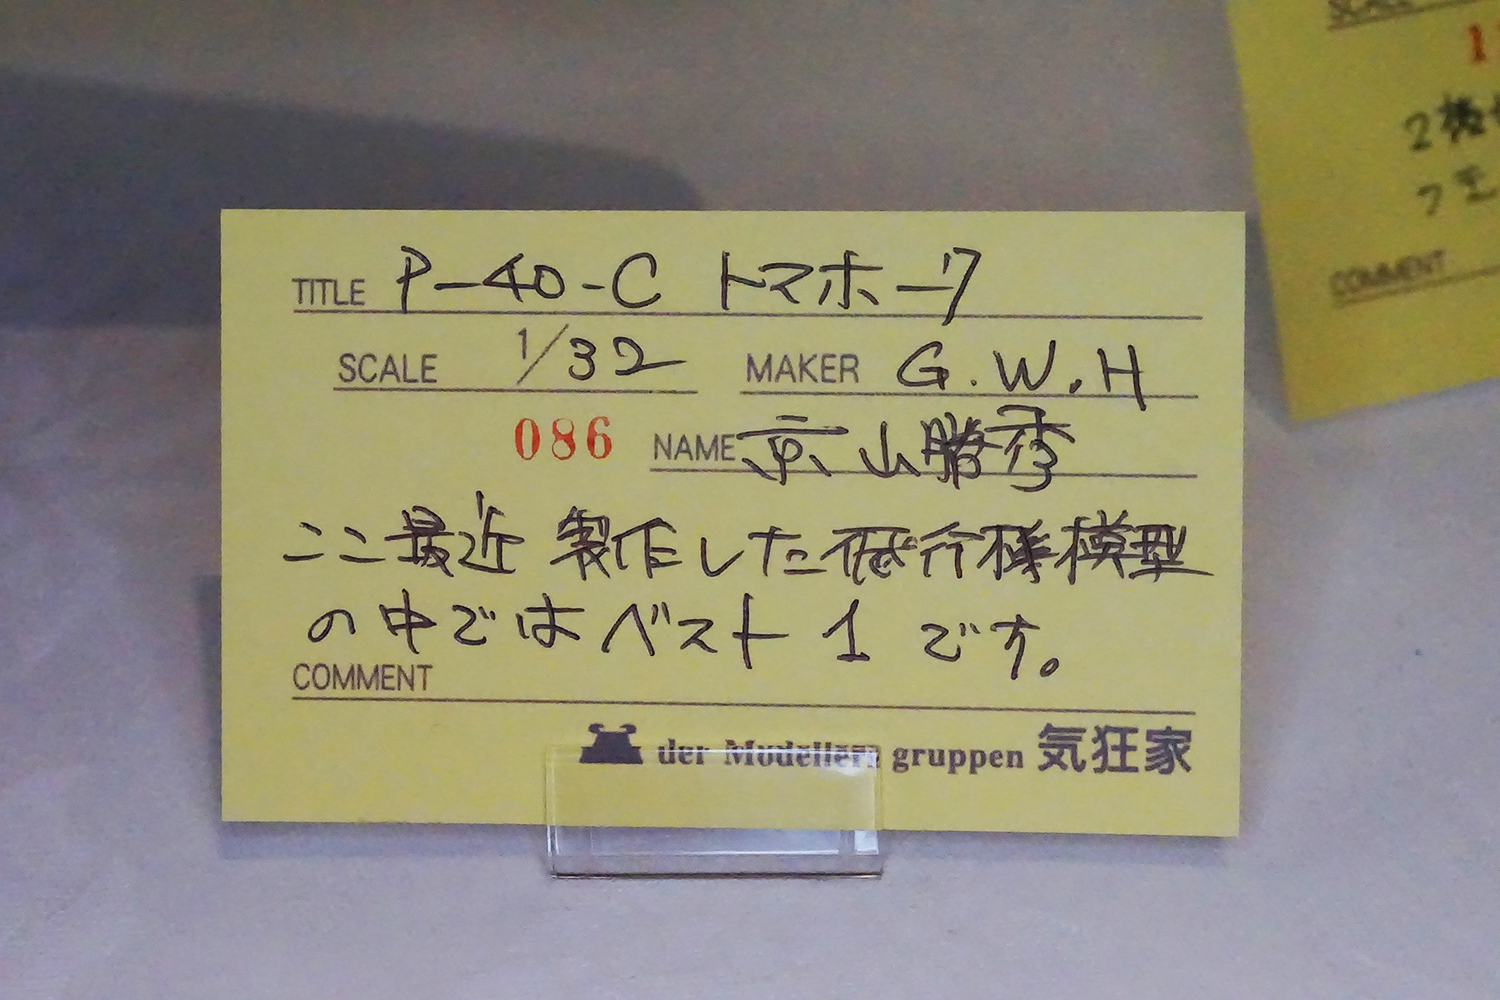 TITLE P-40-C トマホーク
SCALE 1/32 MAKER G.W.H
086 NAME 京山勝秀
ここ最近 製作した飛行機模型
の中ではベスト1です。
COMMENT
der Modellers gruppen 気狂家
SCALE
1
2機
COMMENT